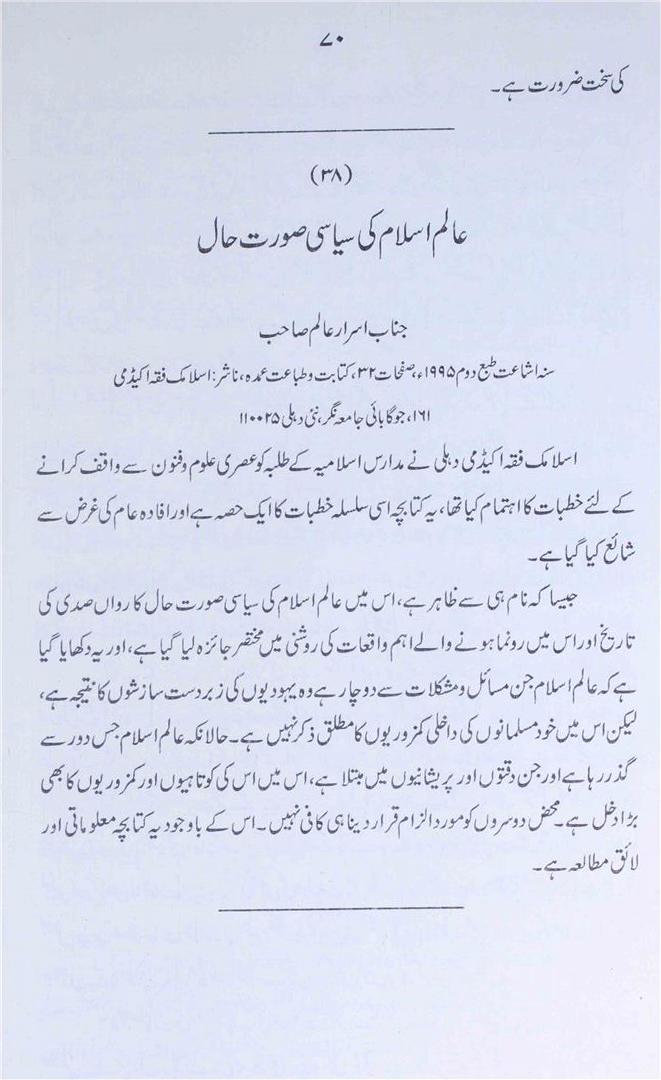 ۷۰
کی سخت ضرورت ہے۔
(۳۸)
عالم اسلام کی سیاسی صورت حال
جناب اسرار عالم صاحب
سنہ اشاعت طبع دوم ۱۹۹۵ء، صفحات ۳۲، کتابت وطباعت عمدہ، ناشر: اسلامک فقہ اکیڈمی
۱۶۱، جوگابائی جامعہ نگر، نئی دہلی ۱۱۰۰۲۵
اسلامک فقہ اکیڈمی دہلی نے مدارس اسلامیہ کے طلبہ کو عصری علوم وفنون سے واقف کرانے
کے لئے خطبات کا اہتمام کیا تھا، یہ کتابچہ اسی سلسلہ خطبات کا ایک حصہ ہے اور افادہ عام کی غرض سے
شائع کیا گیا ہے۔
جیسا کہ نام ہی سے ظاہر ہے، اس میں عالم اسلام کی سیاسی صورت حال کا رواں صدی کی
تاریخ اور اس میں رونما ہونے والے اہم واقعات کی روشنی میں مختصر جائزہ لیا گیا ہے، اور یہ دکھایا گیا
ہے کہ عالم اسلام جن مسائل ومشکلات سے دوچار ہے وہ یہودیوں کی زبردست سازشوں کا نتیجہ ہے،
لیکن اس میں خود مسلمانوں کی داخلی کمزوریوں کا مطلق ذکر نہیں ہے۔ حالانکہ عالم اسلام جس دور سے
گذر رہا ہے اور جن دقتوں اور پریشانیوں میں مبتلا ہے، اس میں اس کی کوتاہیوں اور کمزوریوں کا بھی
بڑا دخل ہے۔ محض دوسروں کو مورد الزام قرار دینا ہی کافی نہیں۔ اس کے باوجود یہ کتابچہ معلوماتی اور
لائق مطالعہ ہے۔